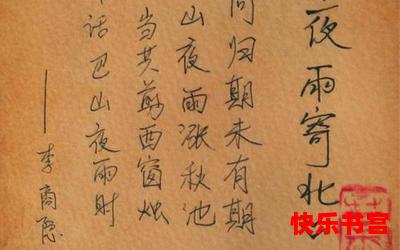 夜雨寄北
问归期未有期
山夜雨涨秋池
当共剪西窗烛
话巴山夜雨时
——李商隐
快乐书宫